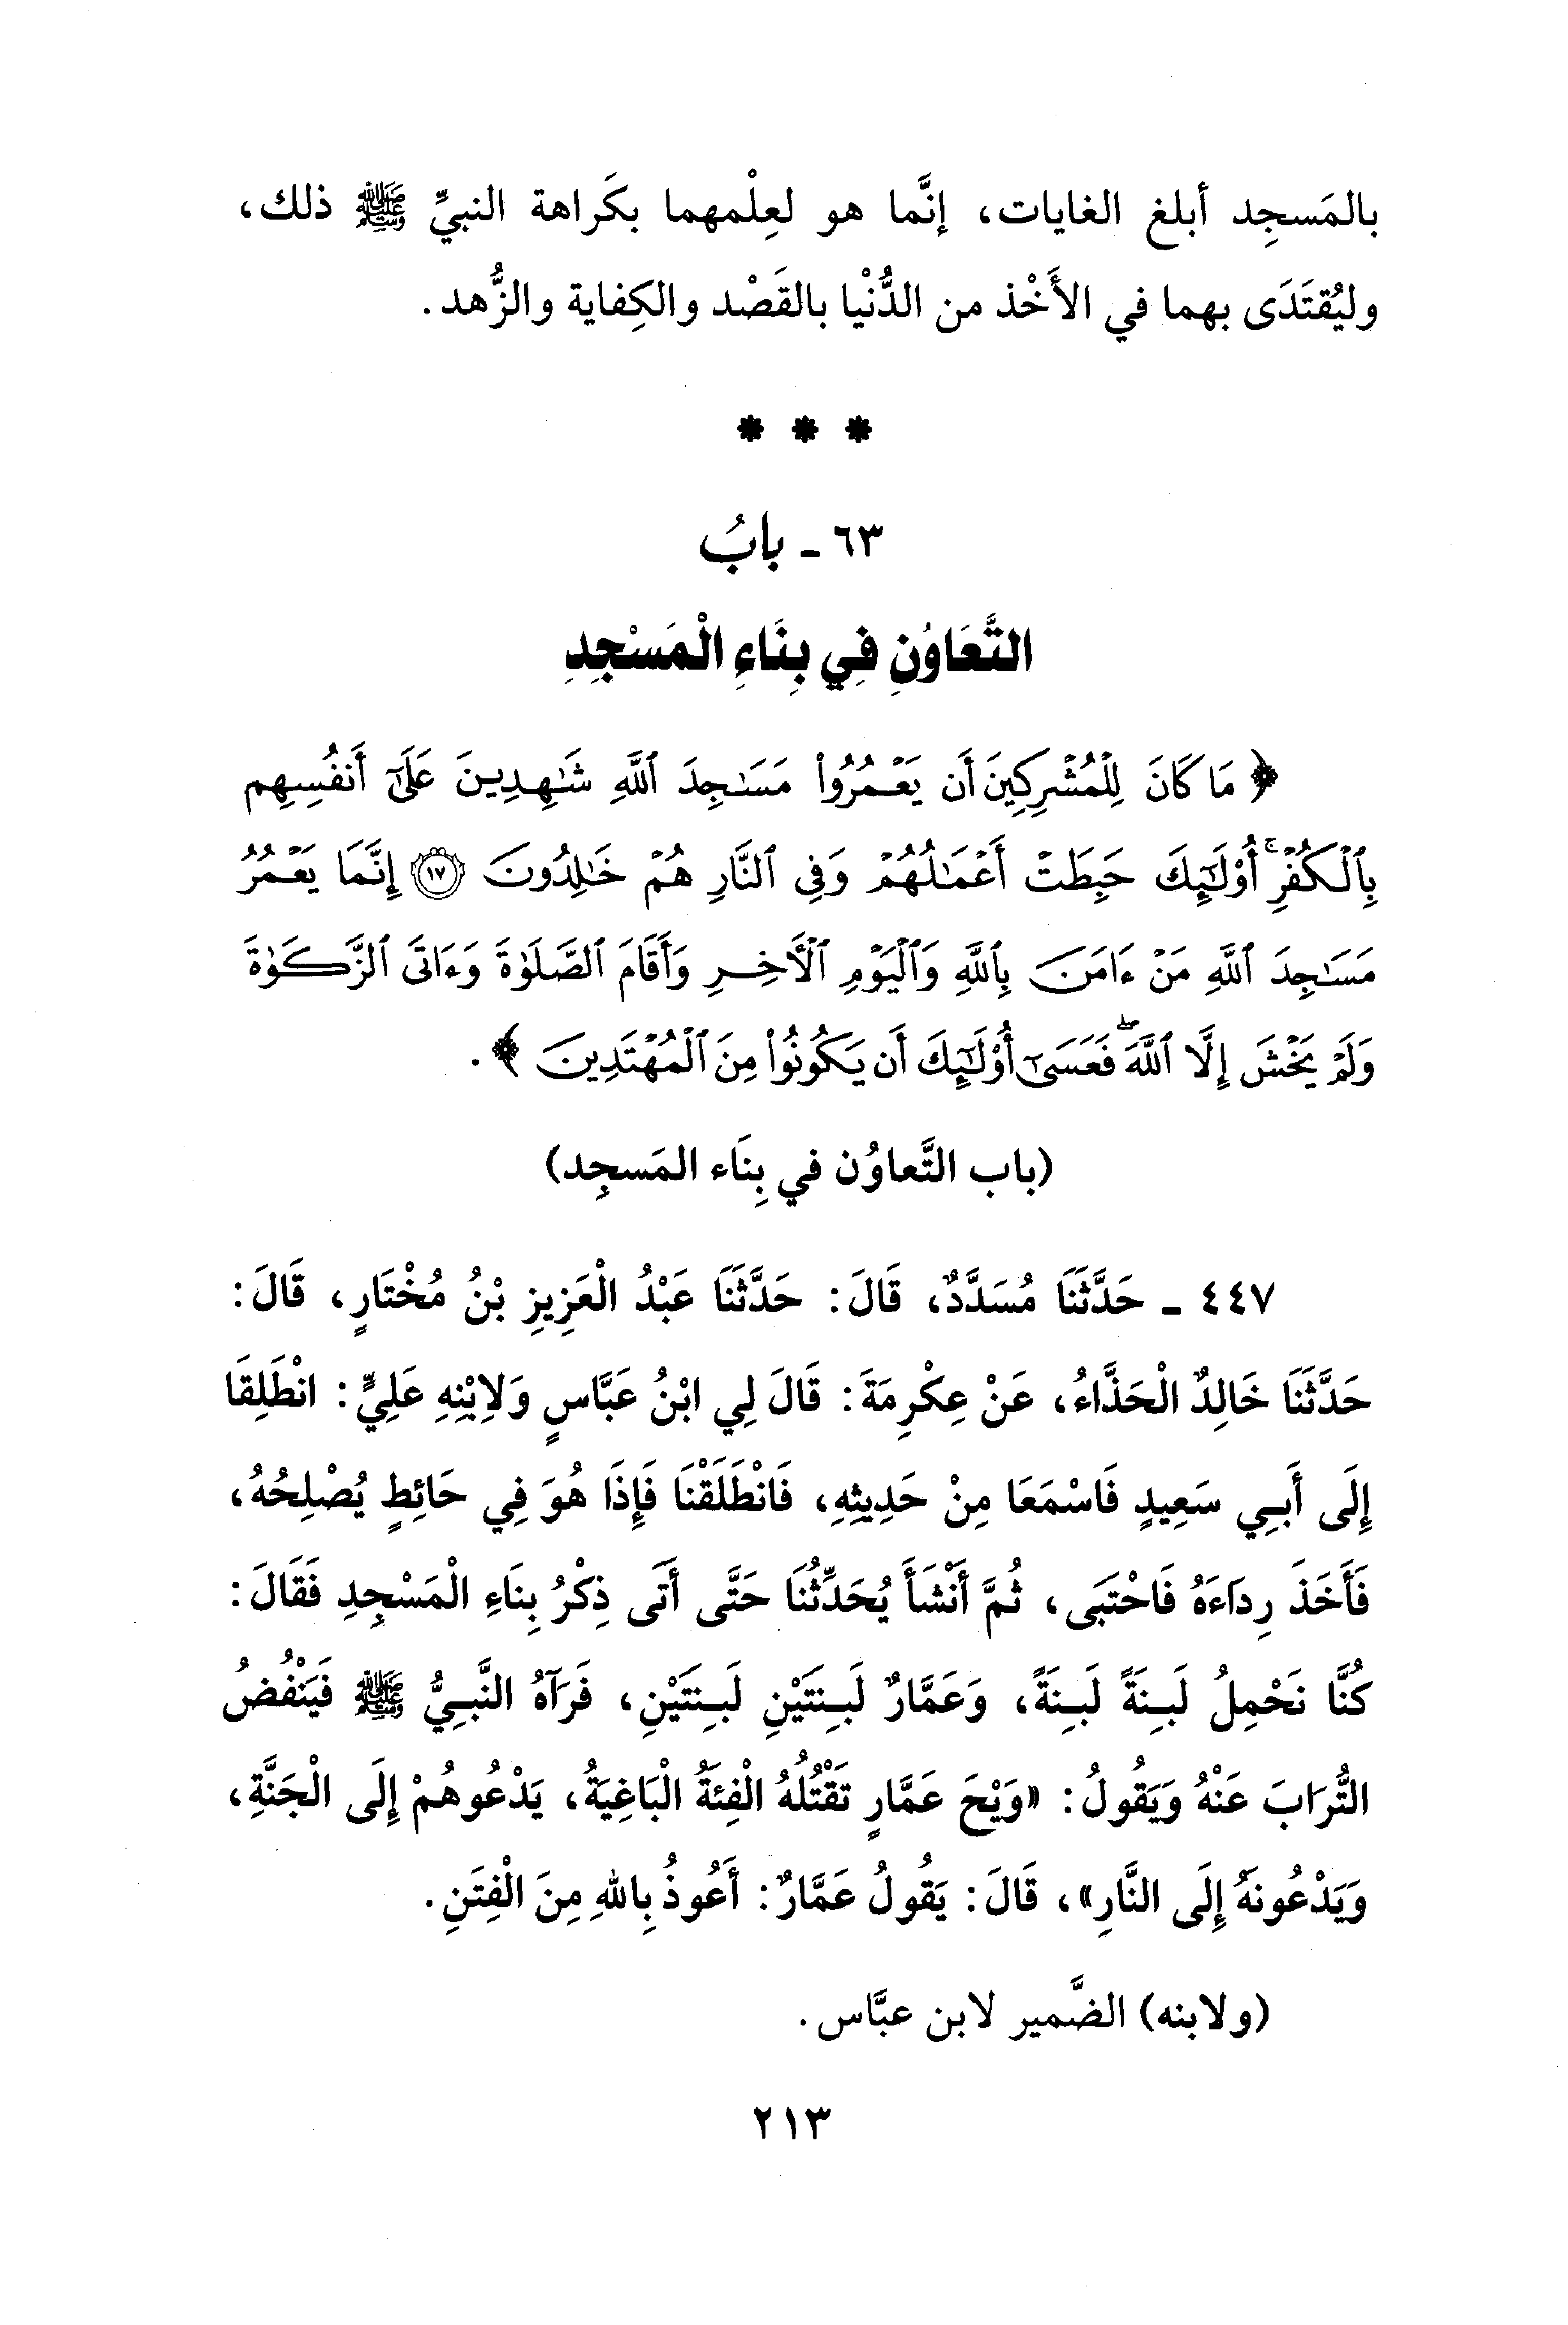 بالمَسجِد أبلغ الغايات، إنَّما هو لعِلْمهما بكَراهة النبيِّ ﷺ ذلك،
وليُقتَدَى بهما في الأَخْذ من الدُّنْيا بالقَصْد والكِفاية والزُّهد.
* * *
٦٣ - بابُ
التَّعَاوُنِ فِي بِنَاءِ الْمَسْجِدِ
﴿ مَا كَانَ لِلْمُشْرِكِينَ أَن يَعْمُرُوا۟ مَسَٰجِدَ ٱللَّهِ شَٰهِدِينَ عَلَىٰٓ أَنفُسِهِم
بِٱلْكُفْرِ ۚ أُو۟لَٰٓئِكَ حَبِطَتْ أَعْمَٰلُهُمْ وَفِى ٱلنَّارِ هُمْ خَٰلِدُونَ ۝١٧ إِنَّمَا يَعْمُرُ
مَسَٰجِدَ ٱللَّهِ مَنْ ءَامَنَ بِٱللَّهِ وَٱلْيَوْمِ ٱلْأَخِرِ وَأَقَامَ ٱلصَّلَوٰةَ وَءَاتَى ٱلزَّكَوٰةَ
وَلَمْ يَخْشَ إِلَّا ٱللَّهَ ۖ فَعَسَىٰٓ أُو۟لَٰٓئِكَ أَن يَكُونُوا۟ مِنَ ٱلْمُهْتَدِينَ ﴾.
(باب التَّعاوُن في بِنَاء المَسجِد)
٤٤٧ - حَدَّثَنَا مُسَدَّدٌ، قَالَ: حَدَّثَنَا عَبْدُ الْعَزِيزِ بْنُ مُخْتَارٍ، قَالَ:
حَدَّثَنَا خَالِدٌ الْحَذَّاءُ، عَنْ عِكْرِمَةَ: قَالَ لِي ابْنُ عَبَّاسٍ وَلاِبْنِهِ عَلِيٍّ: انْطَلِقَا
إِلَى أَبِي سَعِيدٍ فَاسْمَعَا مِنْ حَدِيثِهِ، فَانْطَلَقْنَا فَإِذَا هُوَ فِي حَائِطٍ يُصْلِحُهُ،
فَأَخَذَ رِدَاءَهُ فَاحْتَبَى، ثُمَّ أَنْشَأَ يُحَدِّثُنَا حَتَّى أَتَى ذِكْرُ بِنَاءِ الْمَسْجِدِ فَقَالَ:
كُنَّا نَحْمِلُ لَبِنَةً لَبِنَةً، وَعَمَّارٌ لَبِنَتَيْنِ لَبِنَتَيْنِ، فَرَآهُ النَّبِيُّ ﷺ فَيَنْفُضُ
التُّرَابَ عَنْهُ وَيَقُولُ: «وَيْحَ عَمَّارٍ تَقْتُلُهُ الْفِئَةُ الْبَاغِيَةُ، يَدْعُوهُمْ إِلَى الْجَنَّةِ،
وَيَدْعُونَهُ إِلَى النَّارِ»، قَالَ: يَقُولُ عَمَّارٌ: أَعُوذُ بِاللهِ مِنَ الْفِتَنِ.
(ولابنه) الضَّمير لابن عبَّاس.
٢١٣